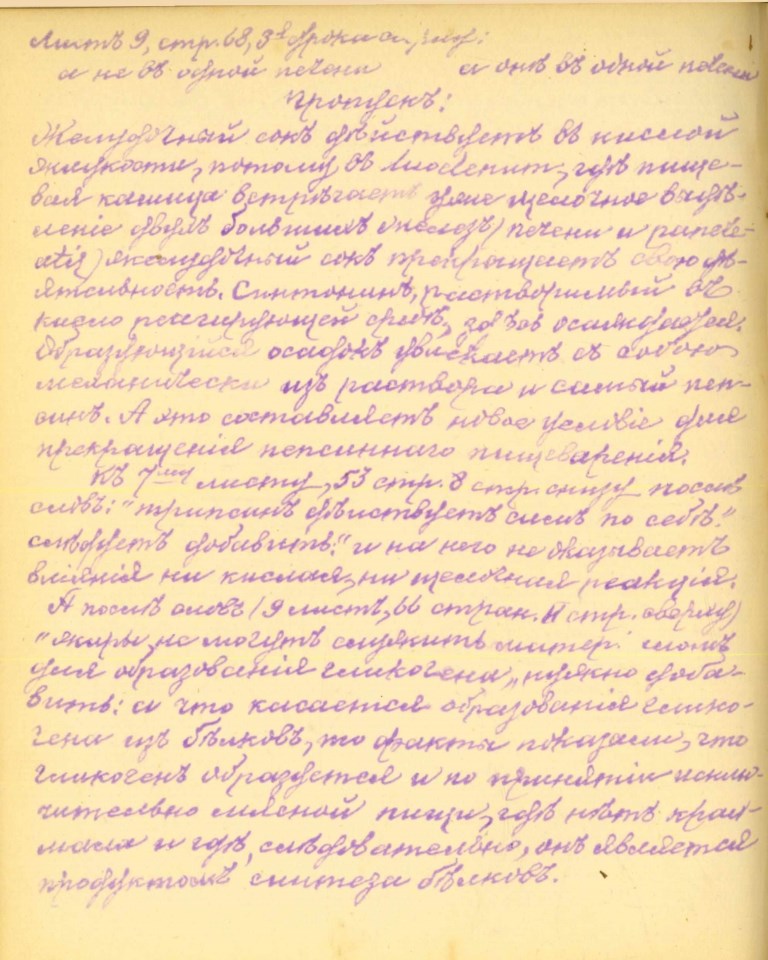 Листъ 9, стр. 68, 3я строка
а не въ одной печени а онъ въ одной печени
Пропускъ:
Желудочный сокъ дѣйствуетъ въ кислой
жидкости, потому въ duodenum, гдѣ пище-
вая кашица встрѣчаетъ уже щелочное выдѣ-
леніе двухъ большихъ железъ) печени и pancre-
atis) желудочный сокъ прекращаетъ свою дѣ-
ятельность. Синтонинъ, растворимый въ
кисло реагирующей средѣ, здѣсь осаждается.
Образующійся осадокъ увлекаетъ съ собою
механически изъ раствора и самый пеп-
синъ. А это составляетъ новое условіе для
прекращенія пепсиннаго пищеваренія.
Къ 7му листу, 53 стр. 8 стр. снизу послѣ
словъ: "трипсинъ дѣйствуетъ самъ по себѣ."
слѣдуетъ добавить: "и на него не оказываетъ
вліянія ни кислая, ни щелочная реакція.
А послѣ словъ (9 листъ, 66 стран. 11 стр. сверху)
"жиры не могутъ служить матеріаломъ
для образованія гликогена" нужно доба-
вить: а что касается образованія глико-
гена изъ бѣлковъ, то факты показали, что
гликогенъ образуется и по принятіи исклю-
чительно мясной пищи, гдѣ нѣтъ крах-
мала и гдѣ, слѣдовательно, онъ является
продуктомъ синтеза бѣлковъ.